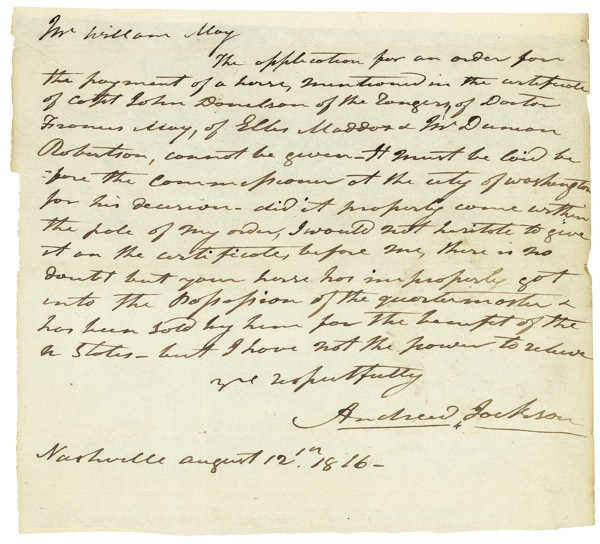 Mr William May
The application for an order for
the payment of a horse, mentioned in the certificate
of Capt John Donelson of the Rangers, of Doctor
Francis May, of Ellis Maddox & Mr Duncan
Robertson, cannot be given – It must be laid be
-fore the Commissioner at the city of washington
for his decision – did it properly come within
the pale of my order, I would not hesitate to give
it on the certificates before me, there is no
doubt but your horse has improperly got
into the Possession of the quartermaster &
has been sold by him for the benefit of the
u States – but I have not the power to relieve
yrs respectfully
Andrew Jackson
Nashville august 12th 1816 –